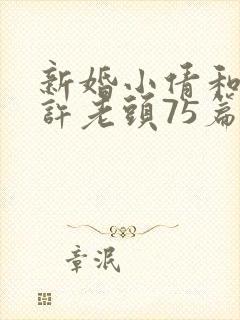 新婚小倩和
許老頭75篇
章泯